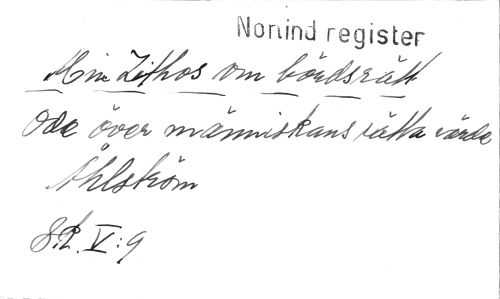 Nomind register
Min Lithos om bördsrätt
Ode över människans rätta värde
Åhlström
S.S. V:9